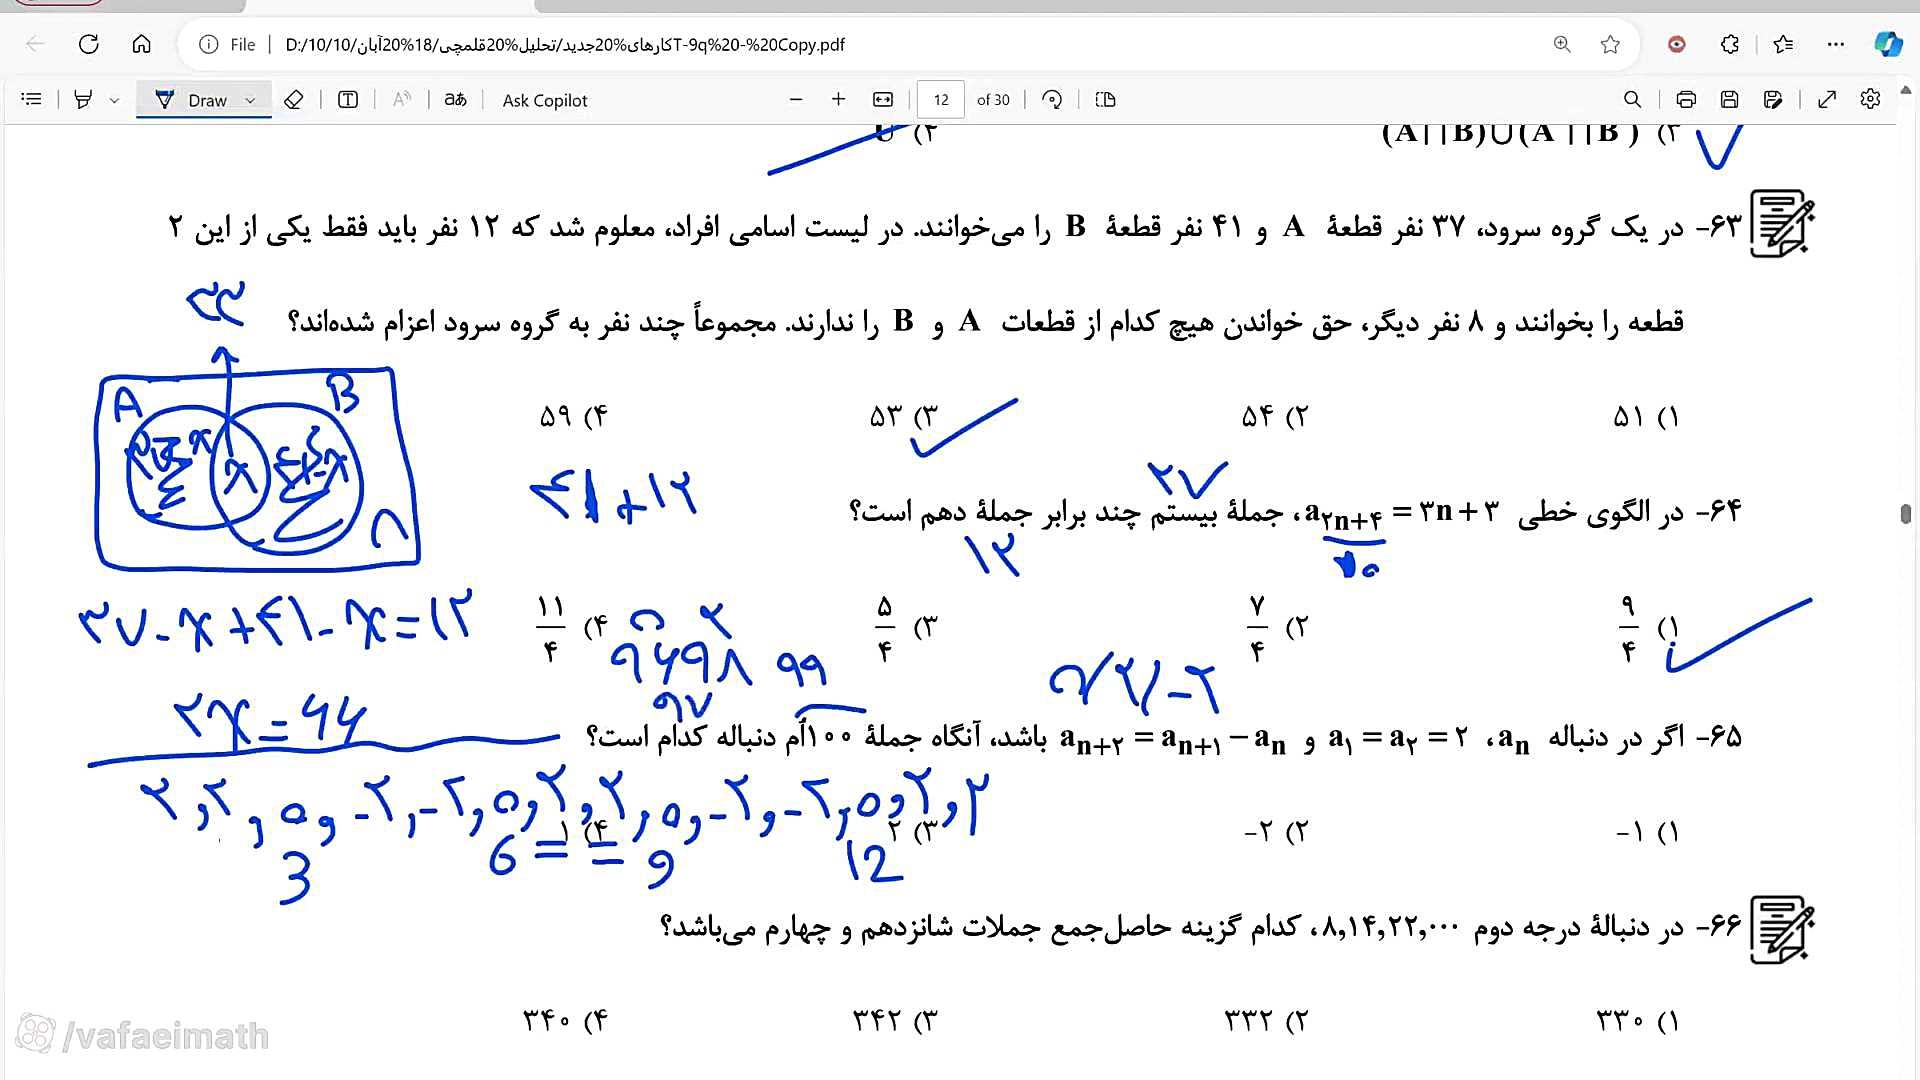 File D:/10/10/کارهای%20جدید/تحلیل%20قلمچی/18%20آبانT-9q%20-%20Copy.pdf
Draw Ask Copilot 12 of 30
۶۳- در یک گروه سرود، ۳۷ نفر قطعهٔ A و ۴۱ نفر قطعهٔ B را می‌خوانند. در لیست اسامی افراد، معلوم شد که ۱۲ نفر باید فقط یکی از این ۲
قطعه را بخوانند و ۸ نفر دیگر، حق خواندن هیچ کدام از قطعات A و B را ندارند. مجموعاً چند نفر به گروه سرود اعزام شده‌اند؟
۳۳
A B
x
۸
۱) ۵۱ ۲) ۵۴ ۳) ۵۳ ۴) ۵۹
۴۱+۱۲
۲۷
۶۴- در الگوی خطی a۲n+۴ = ۳n+۳، جملهٔ بیستم چند برابر جملهٔ دهم است؟
۱۲
۳۷-x+۴۱-x=۱۲
۱) ۹/۴ ۲) ۷/۴ ۳) ۵/۴ ۴) ۱۱/۴
۹۶ ۹۸ ۹۹
۹۷
۲x=۶۶
۶۵- اگر در دنباله an، a۱ = a۲ = ۲ و an+۲ = an+۱ − an باشد، آنگاه جملهٔ ۱۰۰اُم دنباله کدام است؟
۲,۲,۰,-۲,-۲,۰,۲,۲,۰,-۲,-۲,۰,۲,۲
۱) -۱ ۲) -۲ ۳) ۲ ۴) ۱
3 6 9 12
۶۶- در دنبالهٔ درجه دوم ۸,۱۴,۲۲,...، کدام گزینه حاصل‌جمع جملات شانزدهم و چهارم می‌باشد؟
۱) ۳۳۰ ۲) ۳۳۲ ۳) ۳۴۲ ۴) ۳۴۰
/vafaeimath